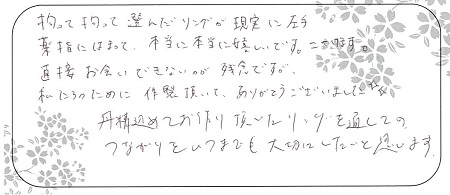 拘って拘って選んだリングが現実に左手
薬指にはまって、本当に本当に嬉しいです。
直接お会いできないのが残念ですが、
私たちのために作製頂いて、ありがとうございました
丹精込めてお作り頂いたリングを通しての
つながりをいつまでも大切にしたいと思います。